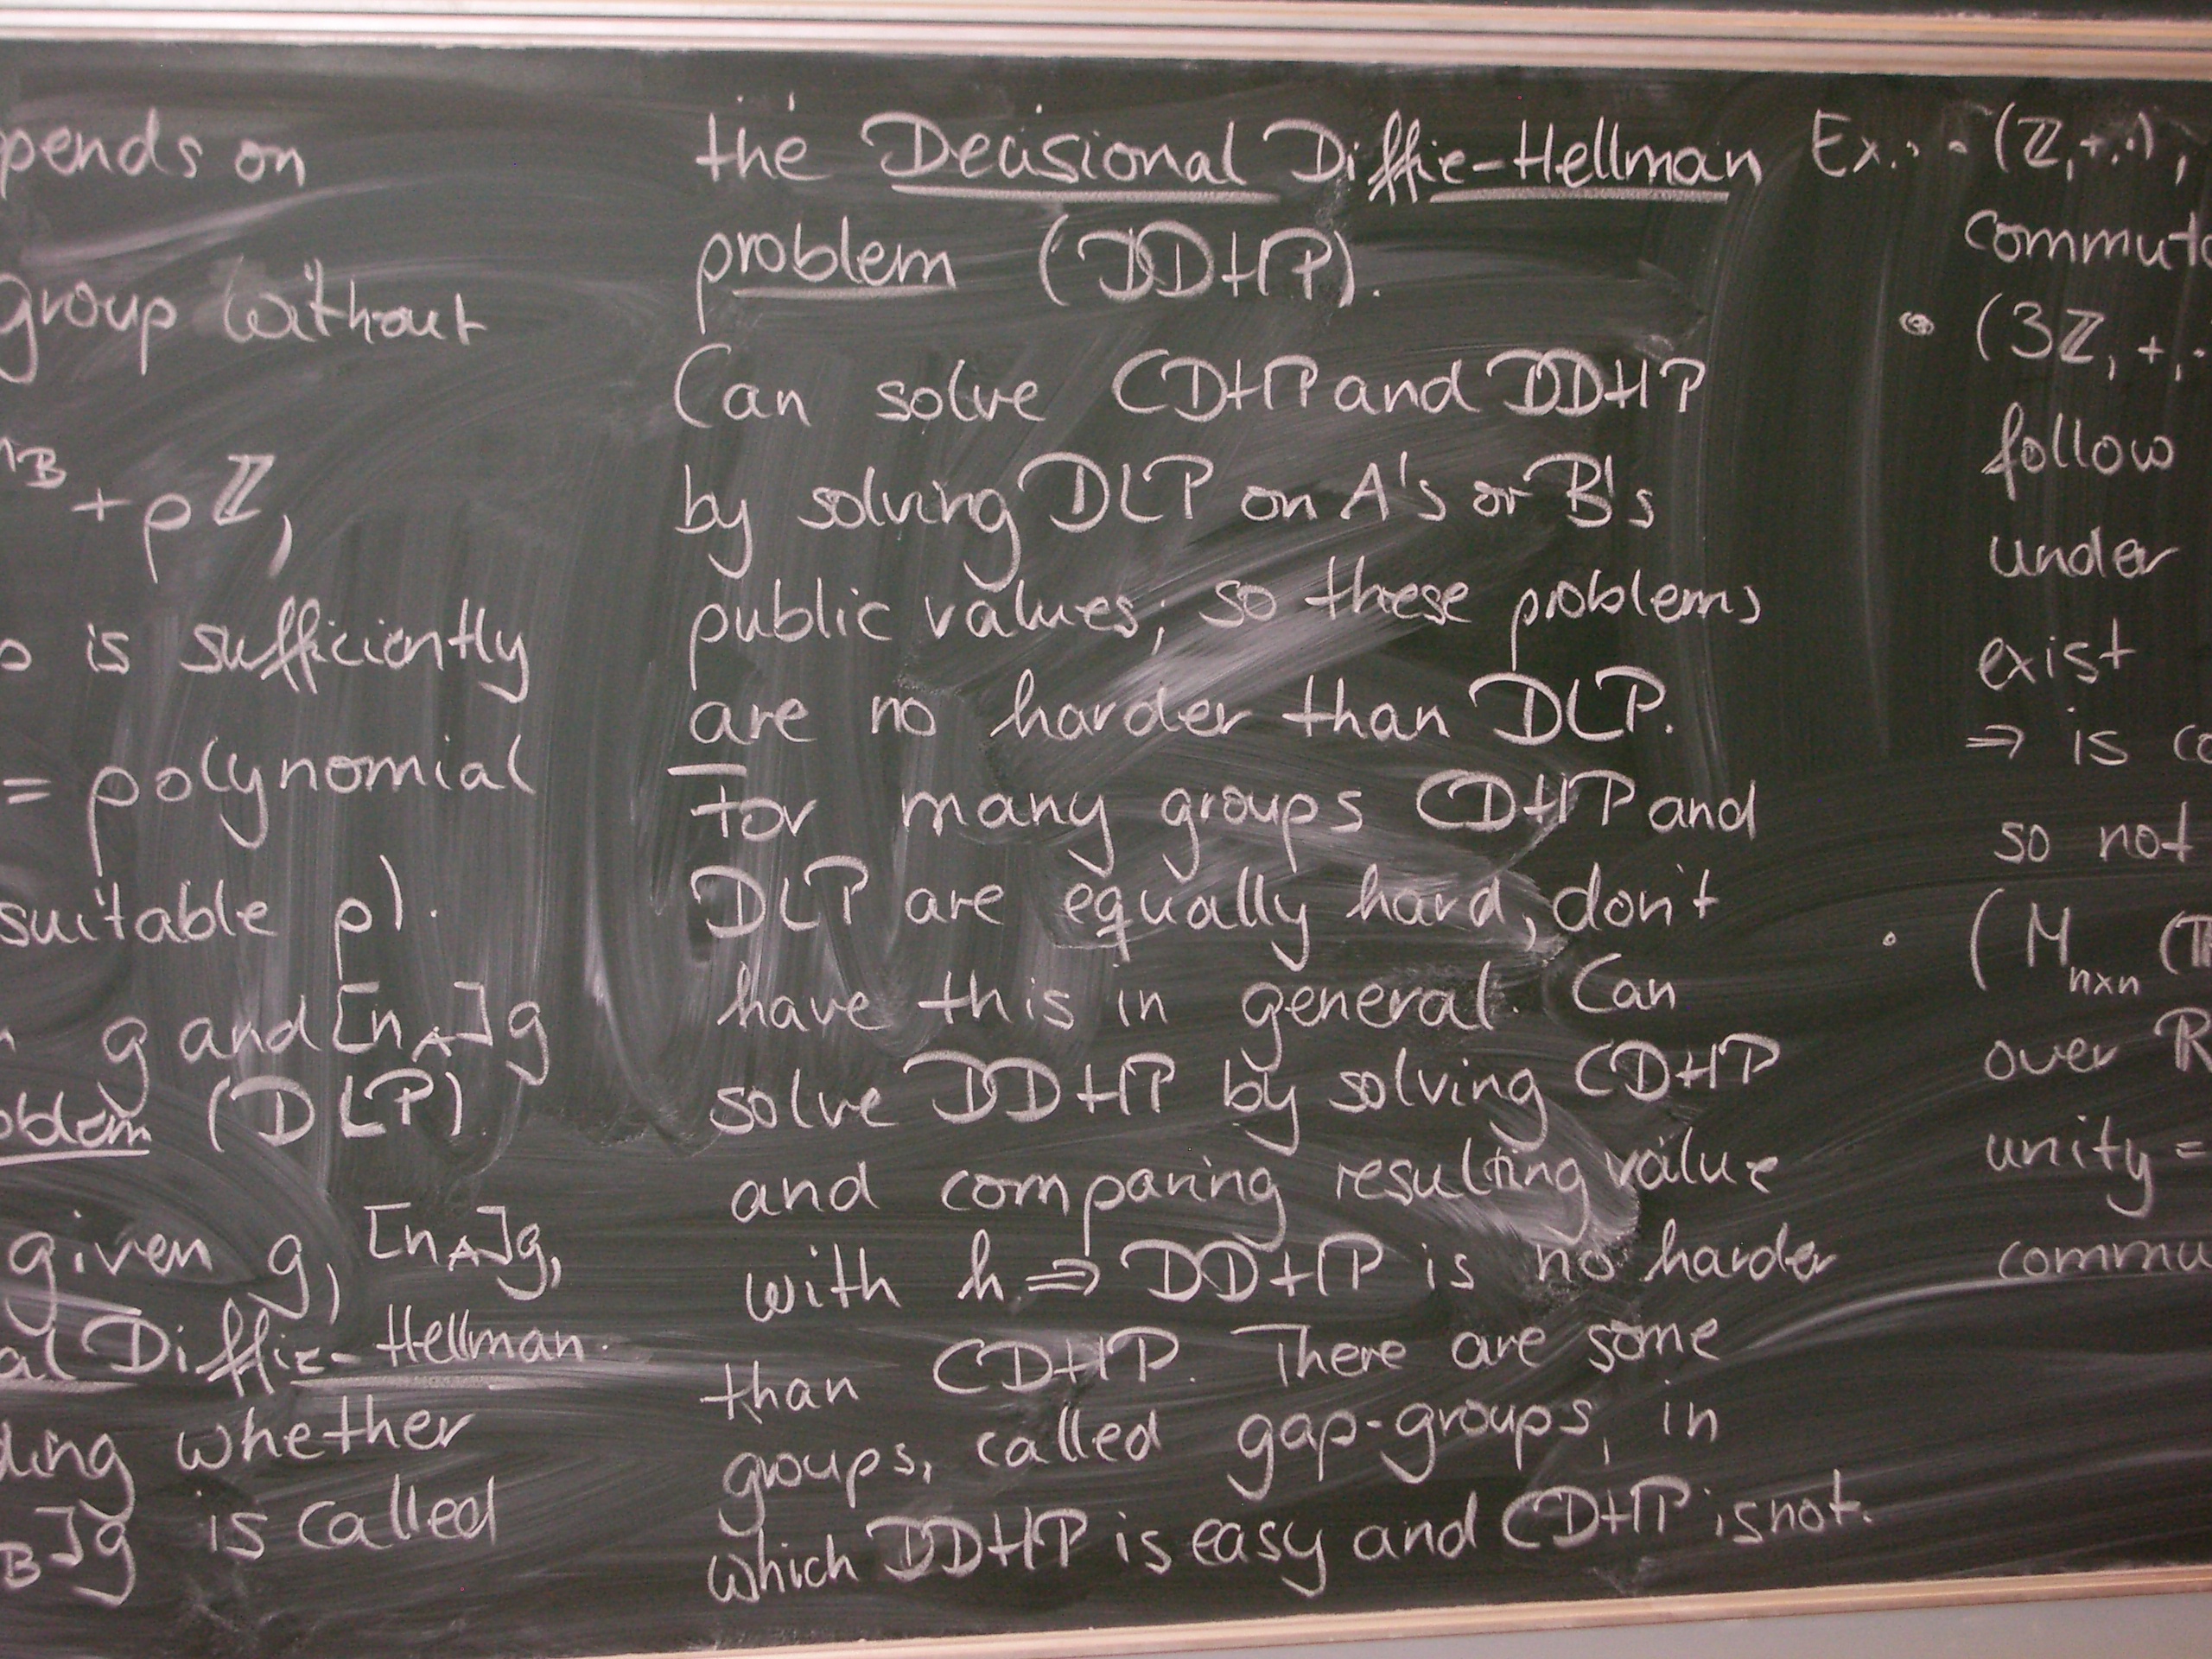 pends on
group without
B + pZ,
is sufficiently
= polynomial
suitable p).
g and [n_A]g
oblem (DLP)
given g, [n_A]g,
al Diffie-Hellman
ding whether
B]g is called
the Decisional Diffie-Hellman
problem (DDHP).
Can solve CDHP and DDHP
by solving DLP on A's or B's
public values; so these problems
are no harder than DLP.
For many groups CDHP and
DLP are equally hard, don't
have this in general. Can
solve DDHP by solving CDHP
and comparing resulting value
with h ⇒ DDHP is no harder
than CDHP. There are some
groups, called gap-groups, in
which DDHP is easy and CDHP is not.
Ex.: - (Z,+,·),
commut
• (3Z, +,·
follow
under
exist
⇒ is co
so not
• (M_nxn (
over R
unity =
commu